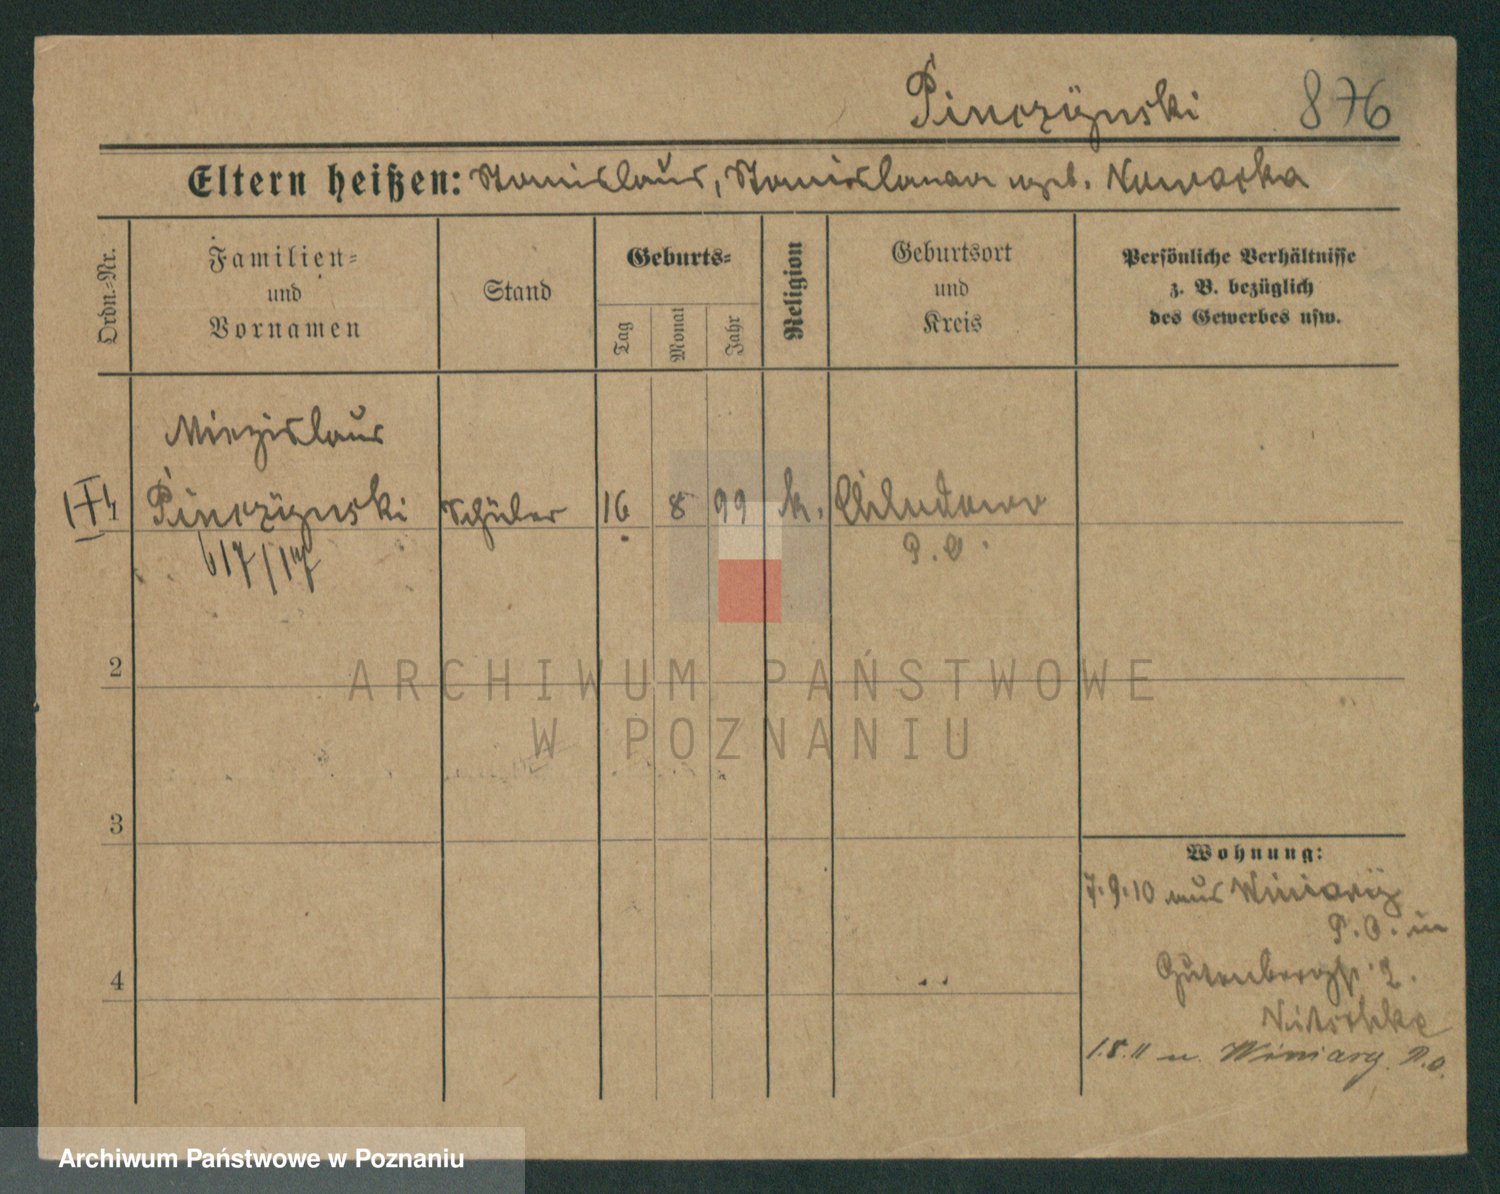 Pinczÿnski 876
Eltern heißen: Stanislaus, Stanislawa geb. Nowacka
Ordn.-Nr.
Familien-
und
Vornamen
Stand
Geburts-
Tag
Monat
Jahr
Religion
Geburtsort
und
Kreis
Persönliche Verhältnisse
z. B. bezüglich
des Gewerbes usw.
Miezislaus
Pinczÿnski Schüler 16 8 99 k. Chludowo
617/17 P. O.
2
ARCHIWUM PAŃSTWOWE
W POZNANIU
3
Wohnung:
7.9.10 aus Winiarÿ
P. O. in
Gutenbergstr. 2.
Nitschke
1.5.11 n. Winiary. P.O.
4
Archiwum Państwowe w Poznaniu